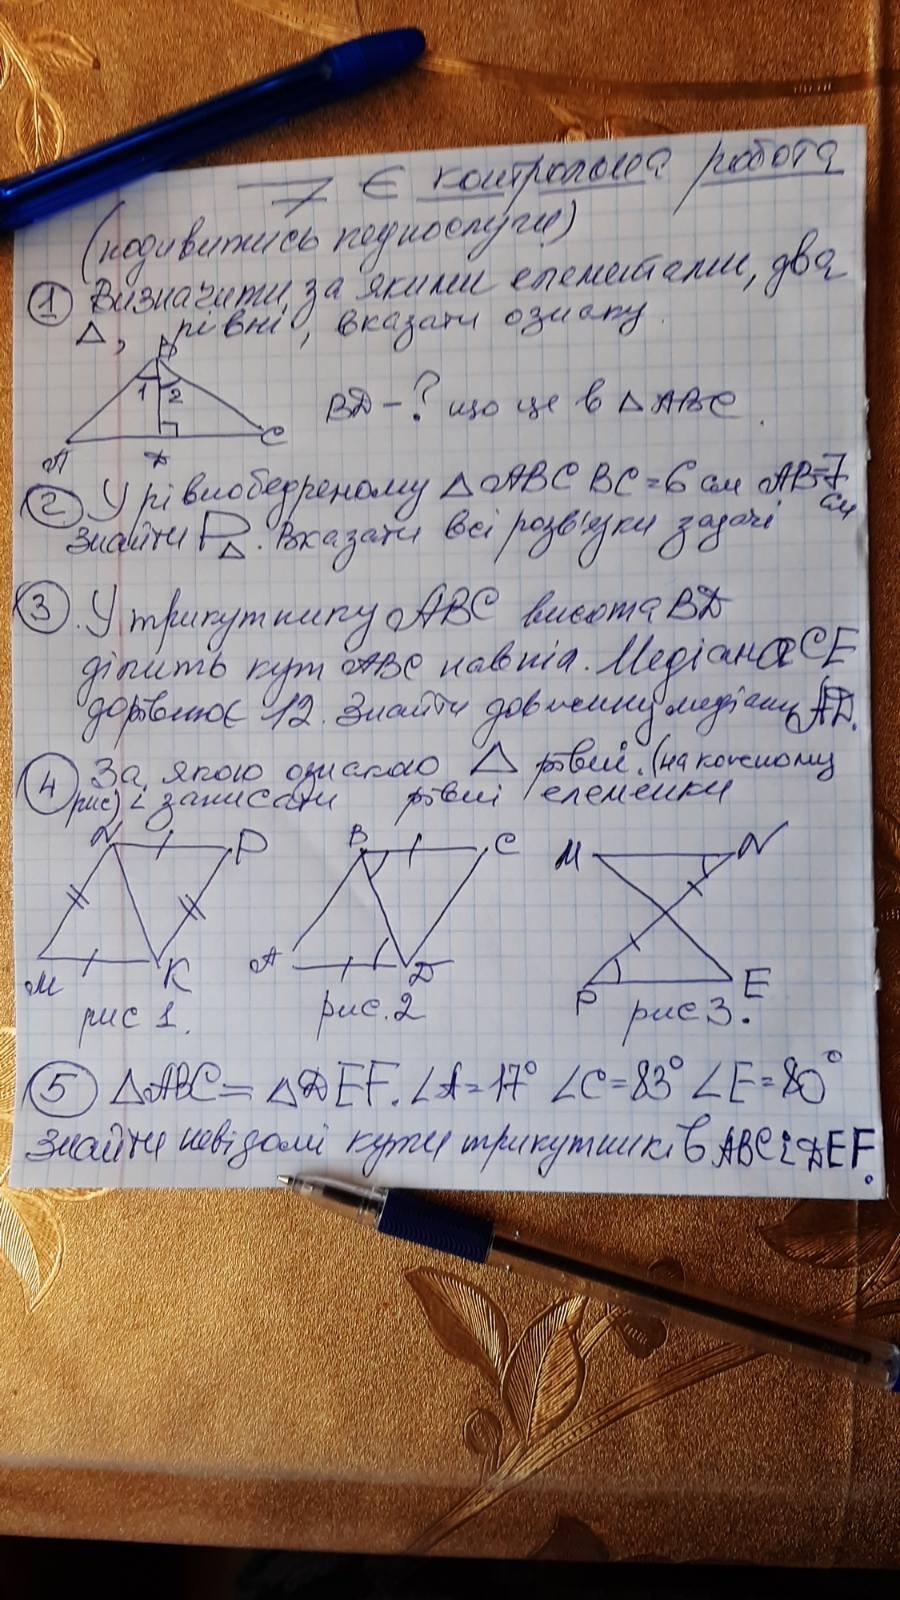 7 Є контрольна робота
(подивитись подпослуги)
① Визначити, за якими елементами, два
Δ, рівні, вказати ознаку.
B
1 2
BD - ? що це в Δ ABC.
A D C
② У рівнобедреному Δ ABC BC = 6 см AB = 7 см
Знайти PΔ. Вказати всі розв'язки задачі
③ У трикутнику ABC висота BD
ділить кут ABC навпіл. Медіана CE
дорівнює 12. Знайти довжину медіани AD.
④ За якою ознакою Δ рівні. (на кожному
рис) і записати рівні елементи
N P B C M N
M K A D P E
рис 1. рис. 2 рис 3.
⑤ ΔABC = ΔDEF. ∠A = 17° ∠C = 83° ∠E = 80°
Знайти невідомі кути трикутників ABC і DEF.